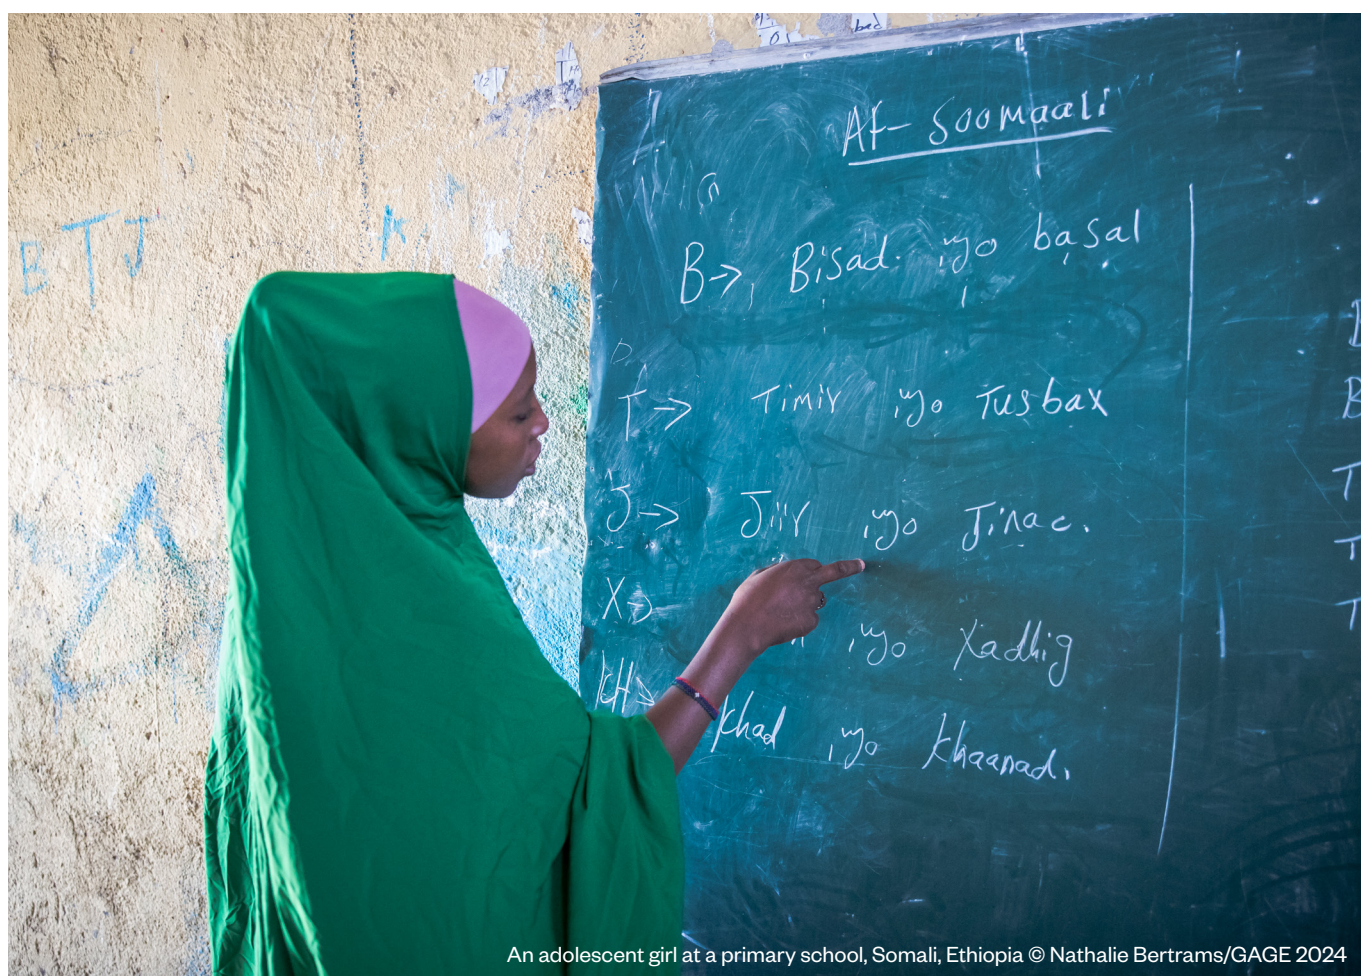 B T J
A
bed
Af-Soomaali
B → Bisad. iyo basal
T → Timir iyo Tusbax
J → Jiir iyo Jinac.
X → iyo Xadhig
KH → Khad iyo Khaanad.
B
T
T
T
An adolescent girl at a primary school, Somali, Ethiopia © Nathalie Bertrams/GAGE 2024